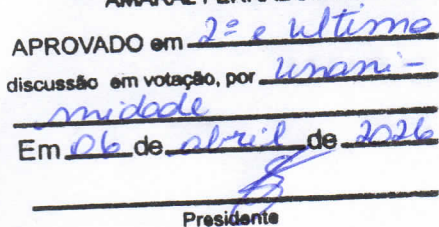 APROVADO em 2ª e ultimo
discussão em votação, por unani-
midade
Em 06 de abril de 2026
Presidente